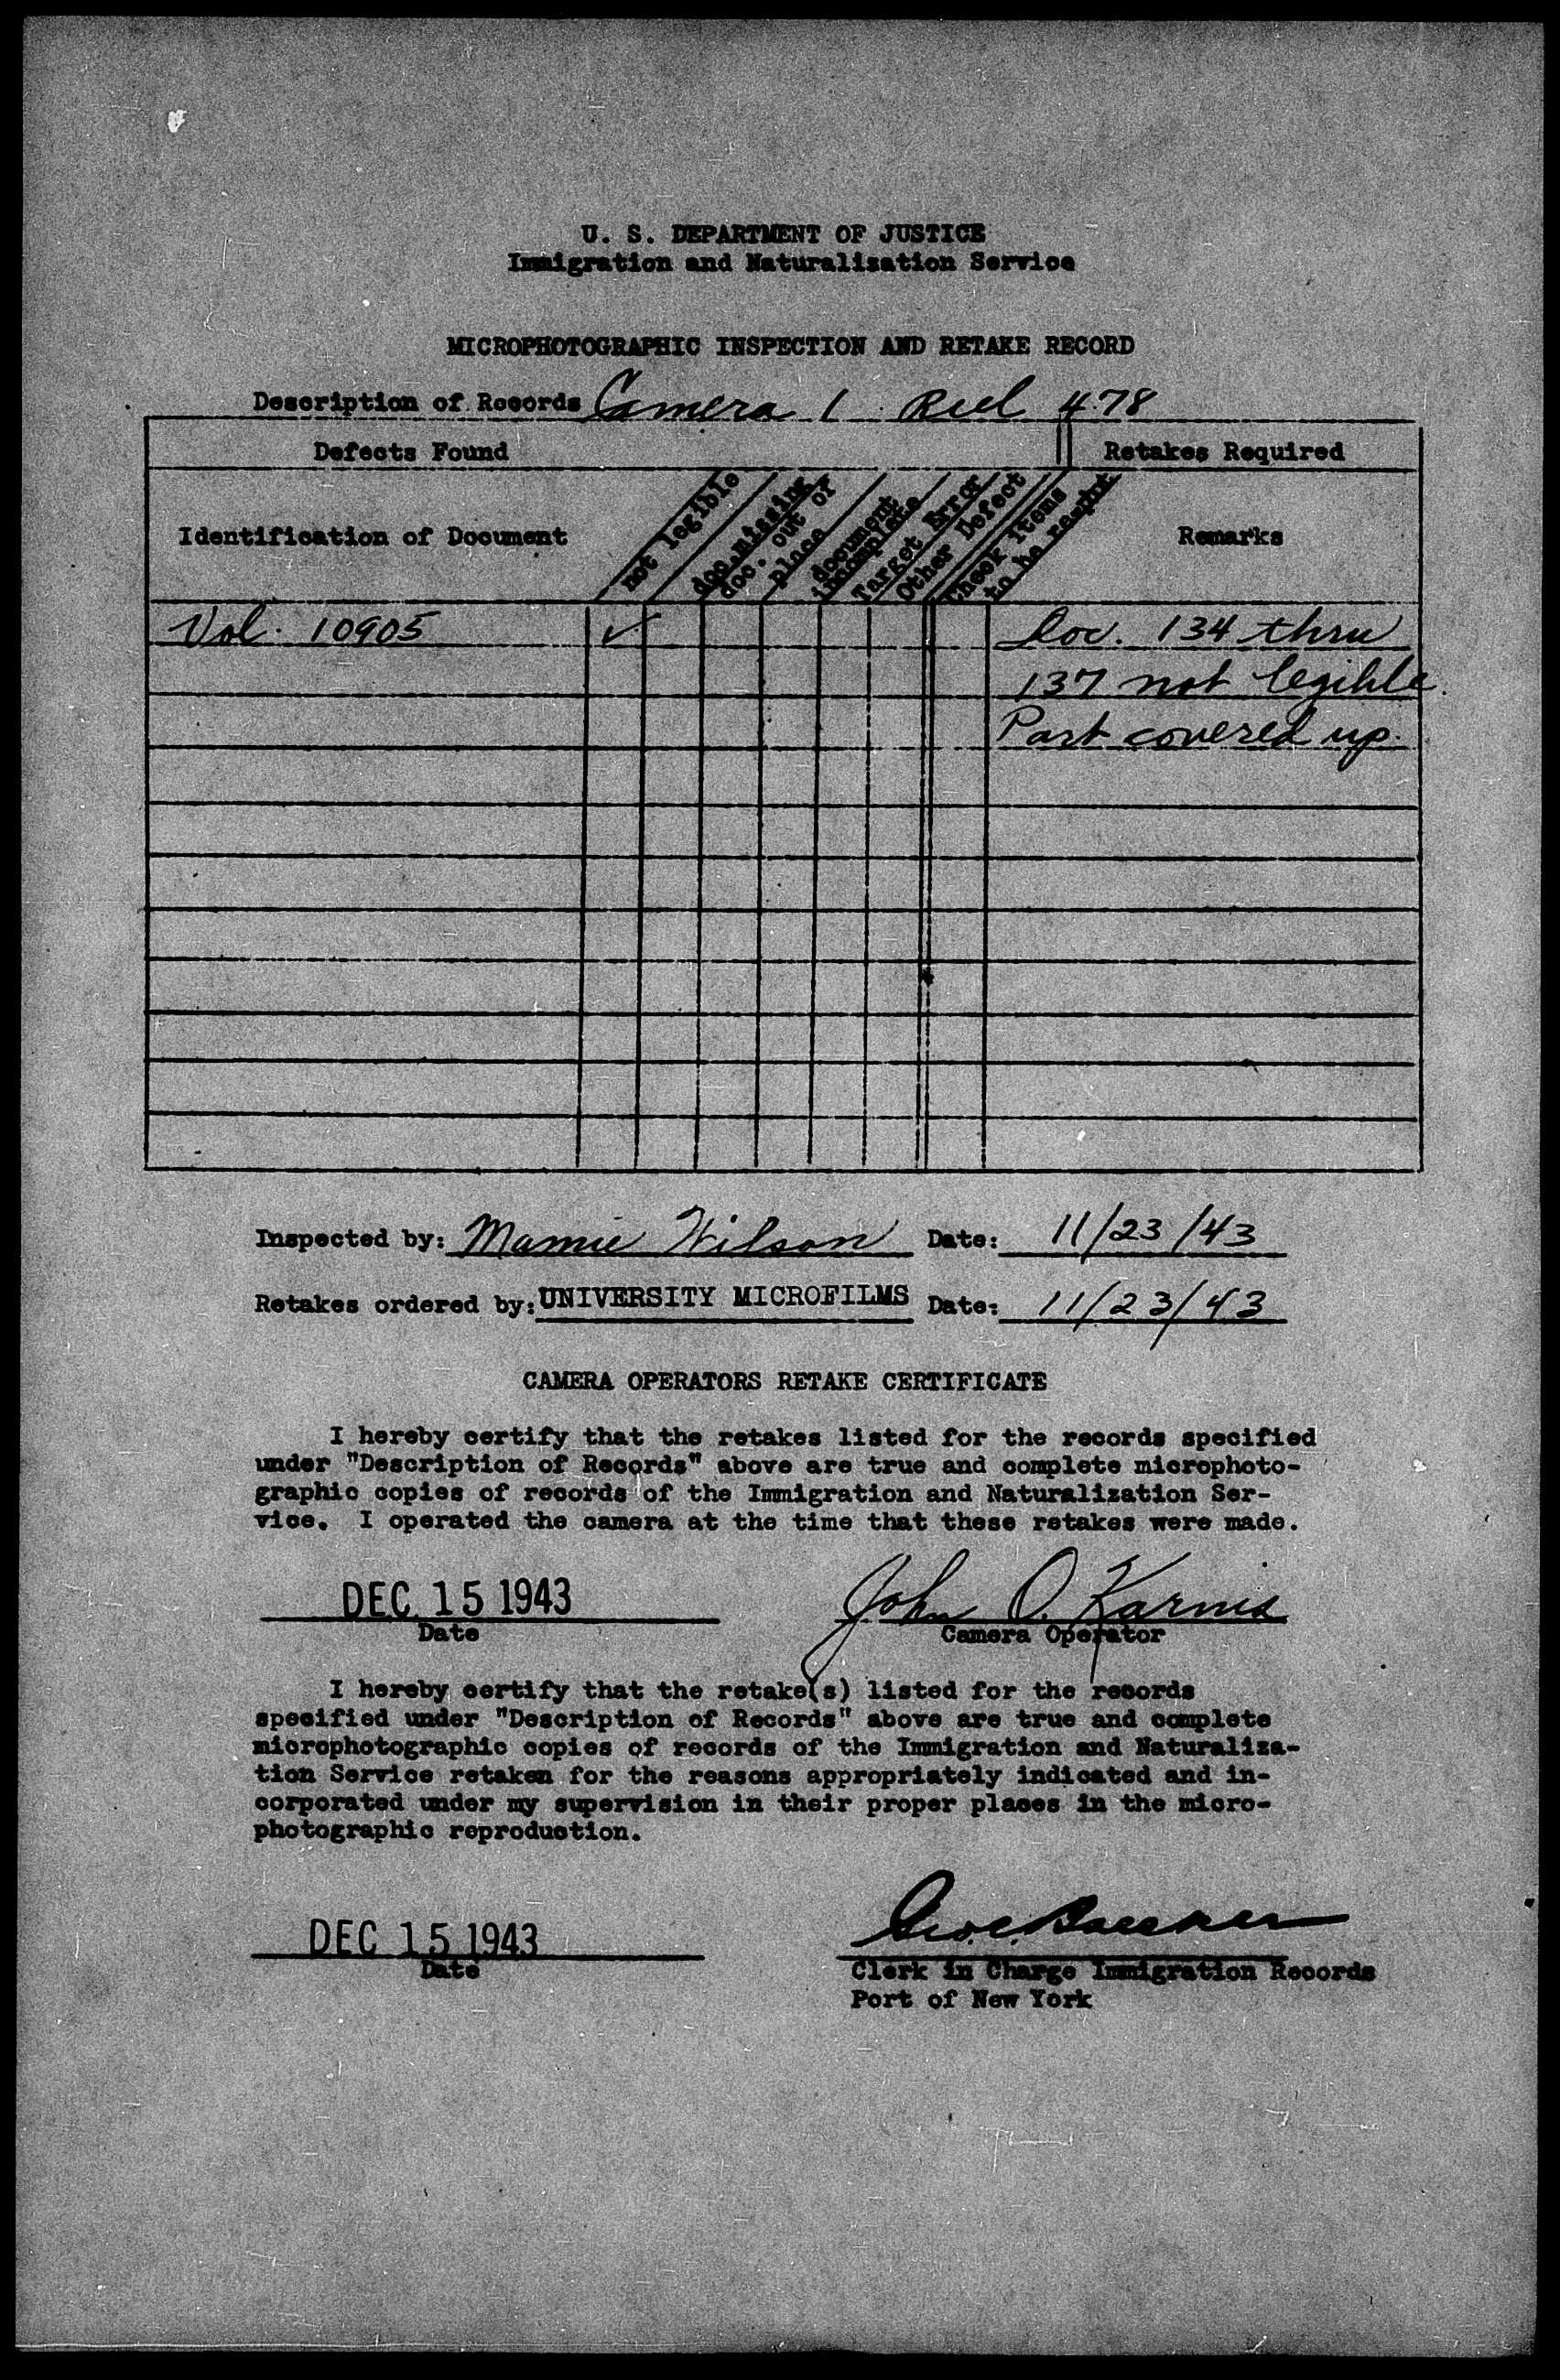 U. S. DEPARTMENT OF JUSTICE
Immigration and Naturalization Service
MICROPHOTOGRAPHIC INSPECTION AND RETAKE RECORD
Description of Records Camera 1 Reel 478
Defects Found Retakes Required
Identification of Document
not legible
doc. missing
doc. out of
place
document
incomplete
Target Error
Other Defect
Check items
to be re-phot
Remarks
Vol. 10905 ✓ Doc. 134 thru
137 not legible.
Part covered up.
Inspected by: Mamie Wilson Date: 11/23/43
Retakes ordered by: UNIVERSITY MICROFILMS Date: 11/23/43
CAMERA OPERATORS RETAKE CERTIFICATE
I hereby certify that the retakes listed for the records specified
under "Description of Records" above are true and complete microphoto-
graphic copies of records of the Immigration and Naturalization Ser-
vice. I operated the camera at the time that these retakes were made.
DEC 15 1943 John O. Karnis
Date Camera Operator
I hereby certify that the retake(s) listed for the records
specified under "Description of Records" above are true and complete
microphotographic copies of records of the Immigration and Naturaliza-
tion Service retaken for the reasons appropriately indicated and in-
corporated under my supervision in their proper places in the micro-
photographic reproduction.
DEC 15 1943
Date Clerk in Charge Immigration Records
Port of New York